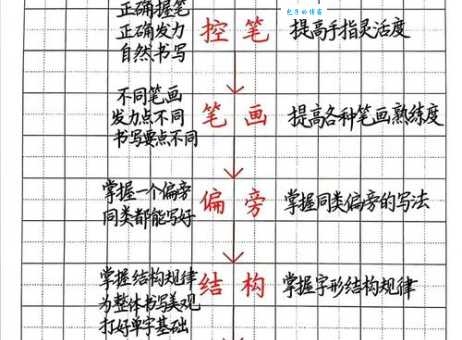 正确握笔
正确发力
自然书写
控笔
提高手指灵活度
不同笔画
发力点不同
书写要点不同
笔画
提高各种笔画熟练度
掌握一个偏旁
同类都能写好
偏旁
掌握同类偏旁的写法
掌握结构规律
为整体书写美观
打好单字基础
结构
掌握字形结构规律